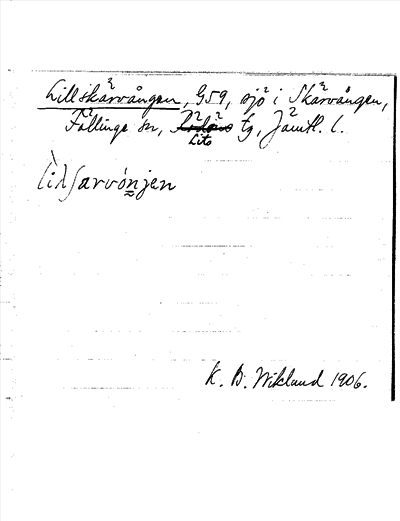 Lillskärvången, G59, sjö i Skärvången,
Föllinge sn, Lits tg, Jämtl. l.
lìlʃarvónjen
K. B. Wiklund 1906.